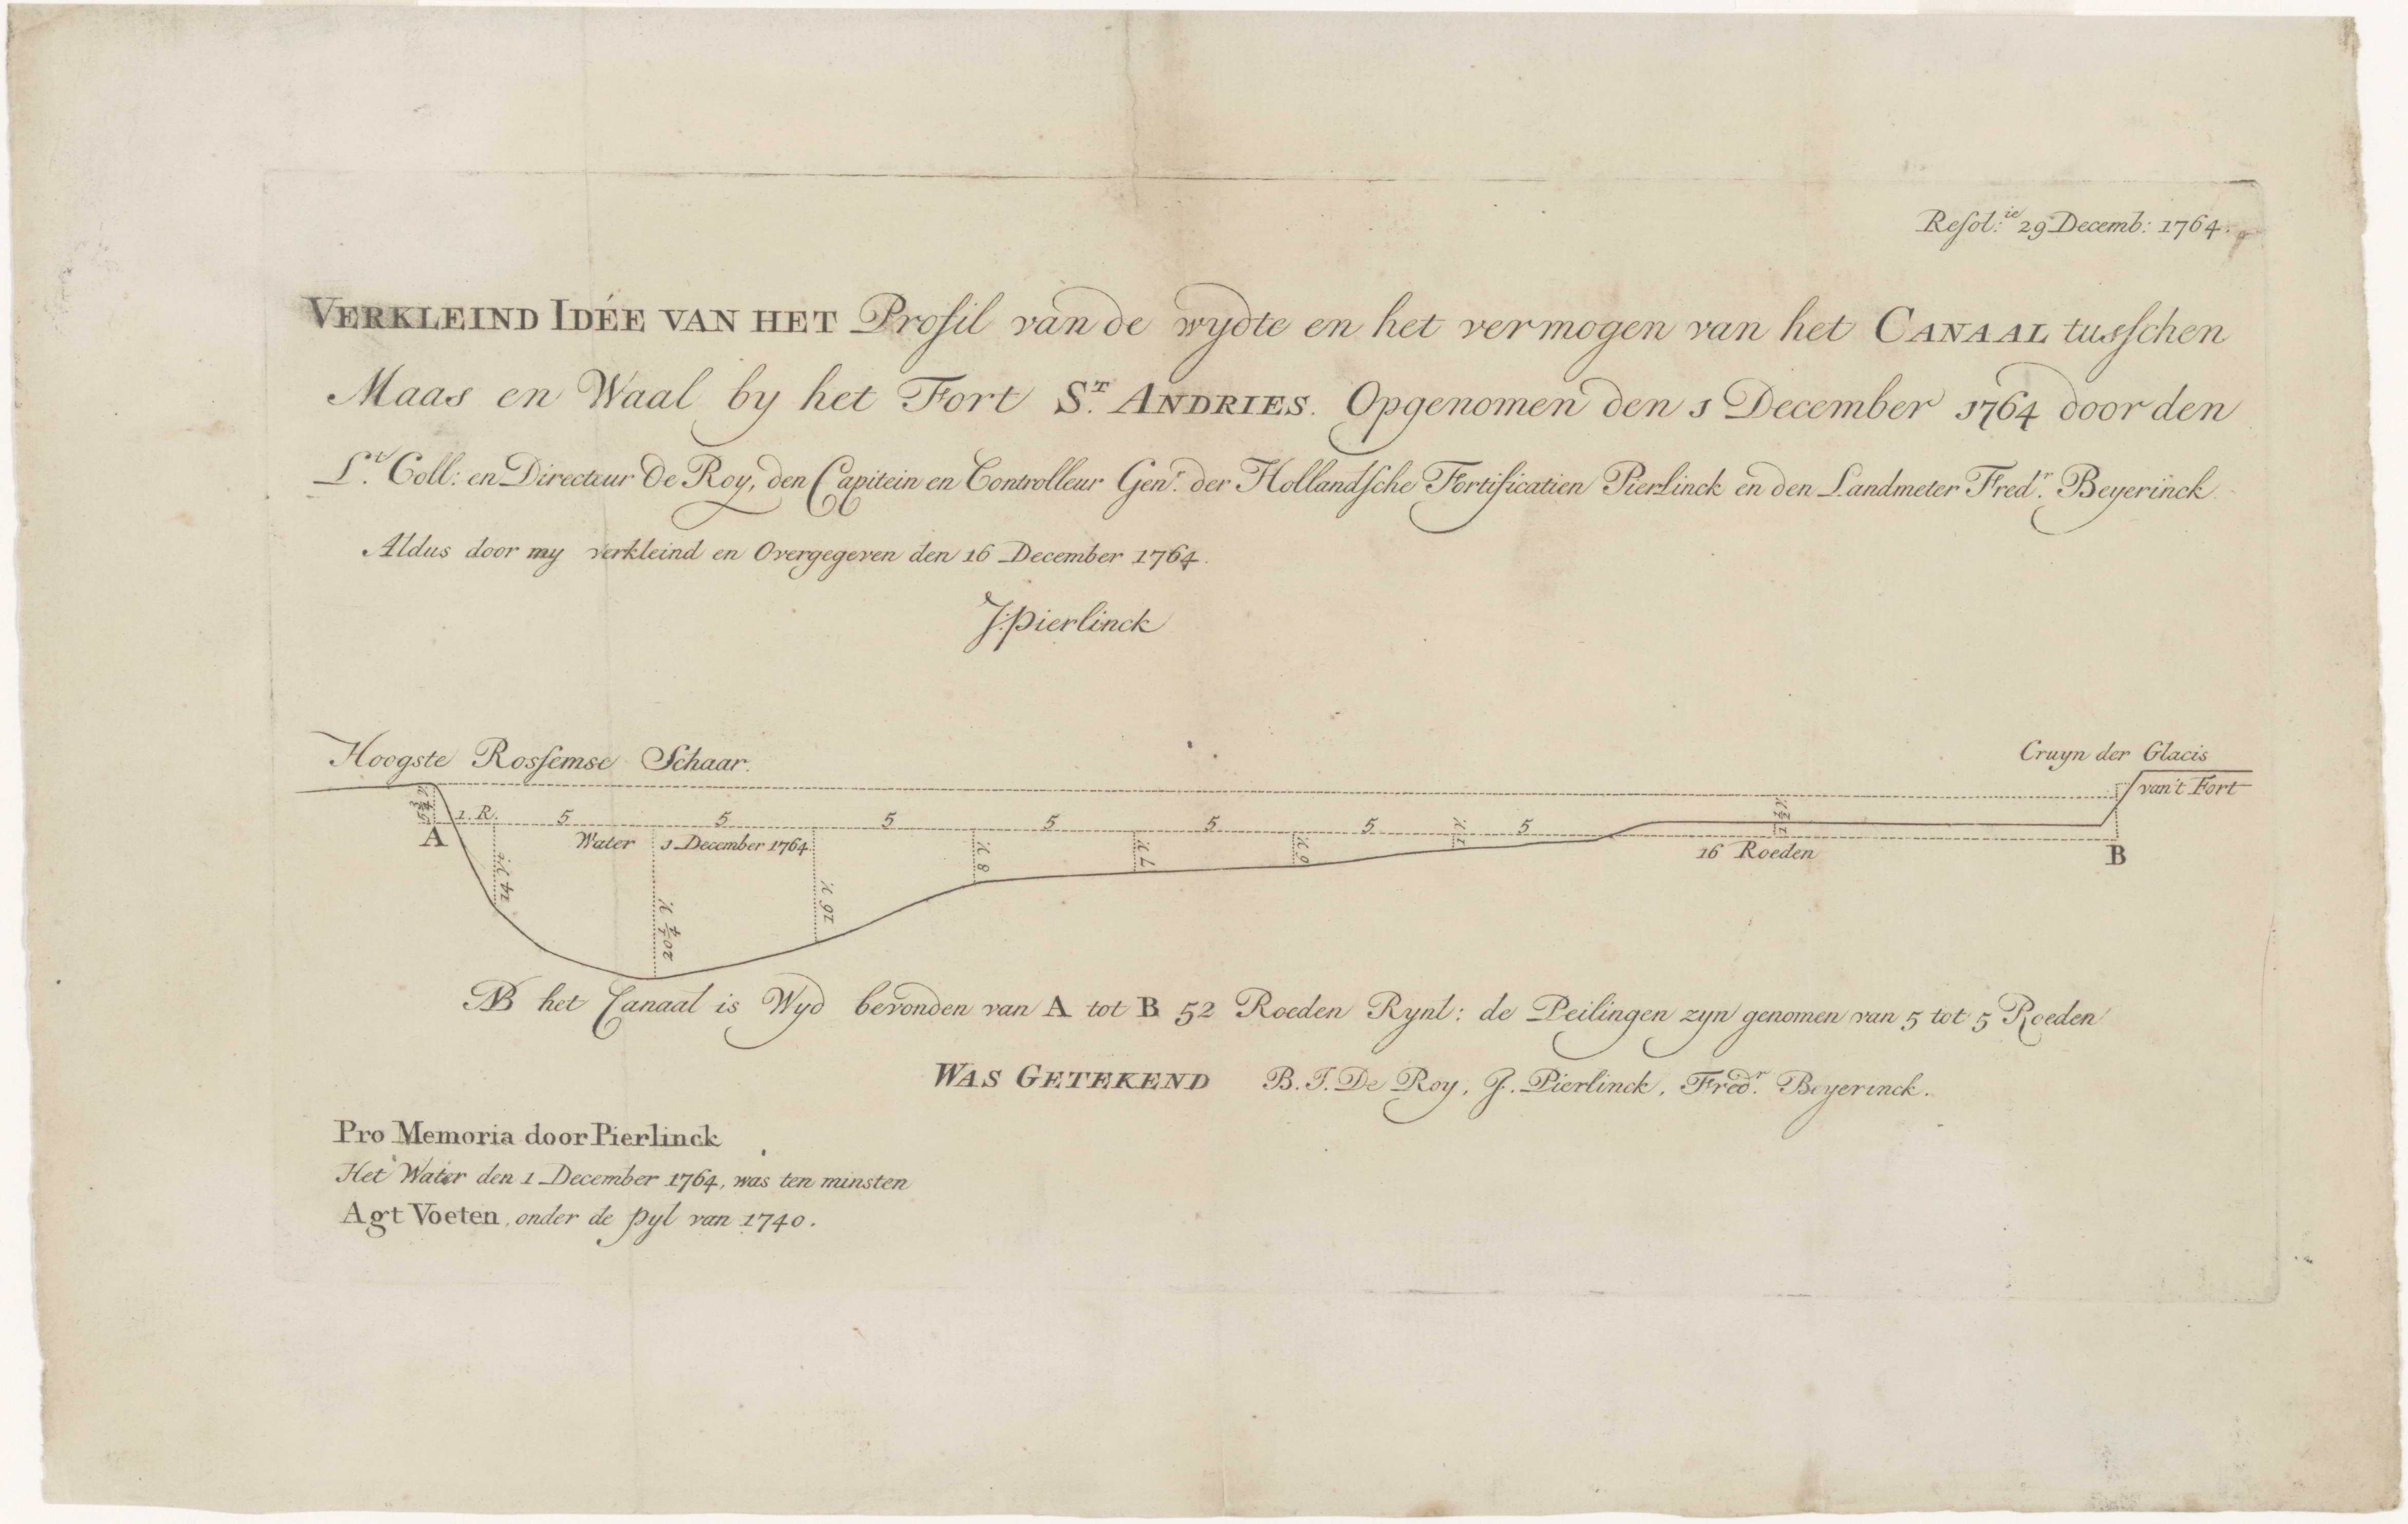 Resol:ie 29 Decemb: 1764.
VERKLEIND IDÉE VAN HET Profil van de wydte en het vermogen van het CANAAL tusschen
Maas en Waal by het Fort ST. ANDRIES. Opgenomen den 1 December 1764 door den
Lt. Coll: en Directeur De Roy, den Capitein en Controlleur Genr. der Hollandsche Fortificatien Pierlinck en den Landmeter Fredr. Beyerinck
Aldus door my verkleind en Overgegeven den 16 December 1764.
J:pierlinck
Hoogste Rossemse Schaar.
Cruyn der Glacis
van't Fort
5 3/4 V.
1. R. 5 5 5 5 5 5 5
A
Water 1 December 1764
14 V.
20 1/4 V.
16 V.
8 V.
7 V.
6 V.
1 V.
1 1/2 V.
16 Roeden
B
NB het Canaal is Wyd bevonden van A tot B 52 Roeden Rynl: de Peilingen zyn genomen van 5 tot 5 Roeden
WAS GETEKEND B. J. De Roy, J. Pierlinck, Fredr. Beyerinck.
Pro Memoria door Pierlinck
Het Water den 1 December 1764, was ten minsten
Agt Voeten, onder de pyl van 1740.